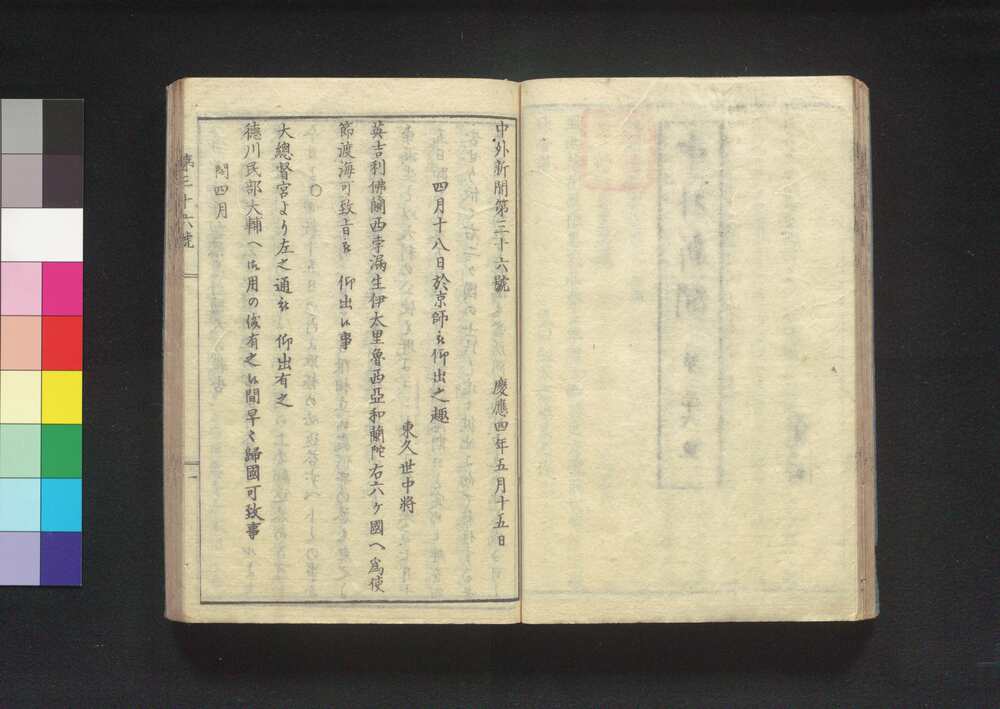 中外新聞第三十六號　慶應四年五月十五日
四月十八日於京師被仰出之趣
東久世中將
英吉利佛蘭西孛漏生伊太里魯西亞和蘭陀右六ケ國へ爲使
節渡海可致旨被　仰出候事
○
大總督宮より左之通被　仰出有之
德川民部大輔へ御用の儀有之候間早々歸國可致事
閏四月
第三十六號
一